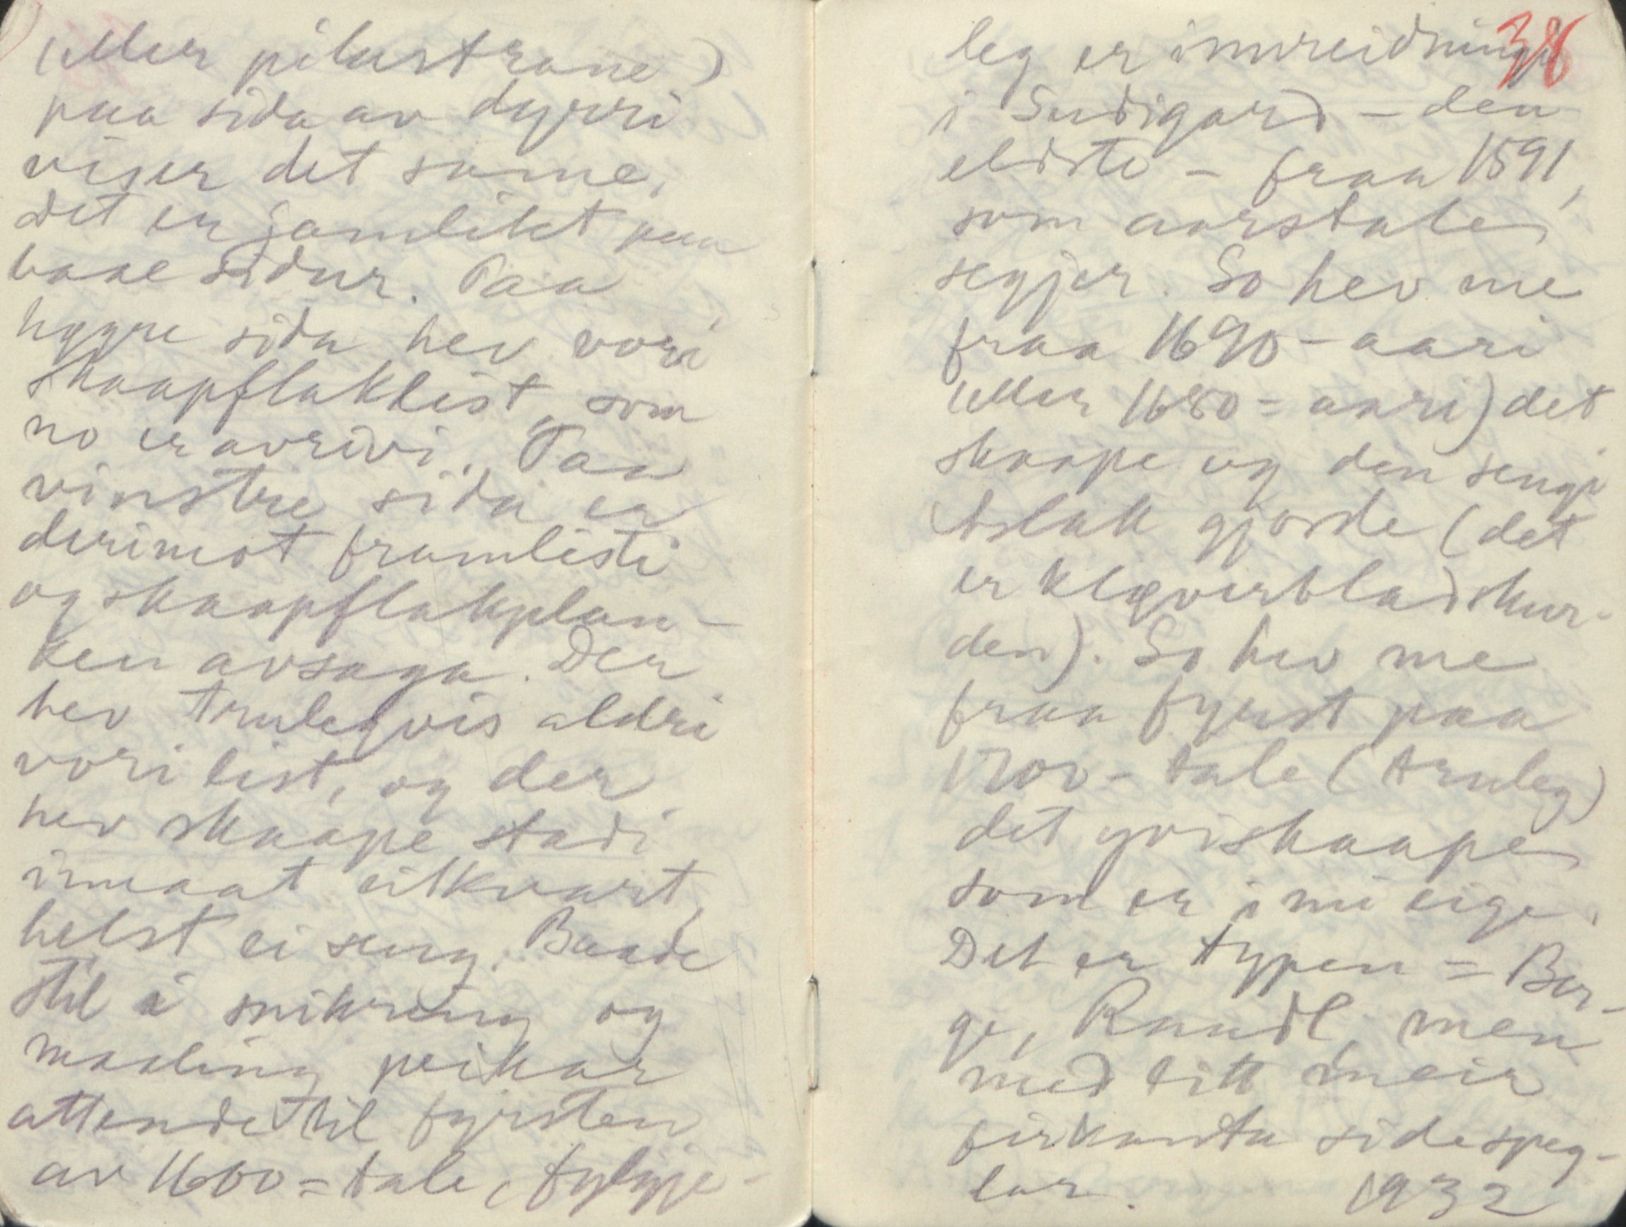 (eller pilastrane)
paa sida av dyrri
viser det same.
Det er jamlikt paa
baae sidur. Paa
høgre sida hev vori
skaapflaklist, som
no er avrivi. Paa
vinstre sida er
derimot framlisti
og skaapflakplan-
ken avsaga. Der
hev truleg vis aldri
vori list, og der
hev skaape stadi
inmaat eitkvart,
helst ei seng. Baade
stil i snikring og
maaling peikar
attende til fyrsten
av 1600-tale, fylgje-
38
leg er innreidningi
i Sudigard – den
eldste – fraa 1591,
som aarstale
segjer. So hev me
fraa 1690-aari
(eller 1680-aari) det
skaape og den sengi
Aslak gjorde (det
er kløverbladskur-
den). So hev me
fraa fyrst paa
1700-tale (truleg)
det yviskaape
som er i mi eige.
Det er typen = Ber-
ge, Raudl, men
med litt meir
firkanta sidespeg-
lar. 1932